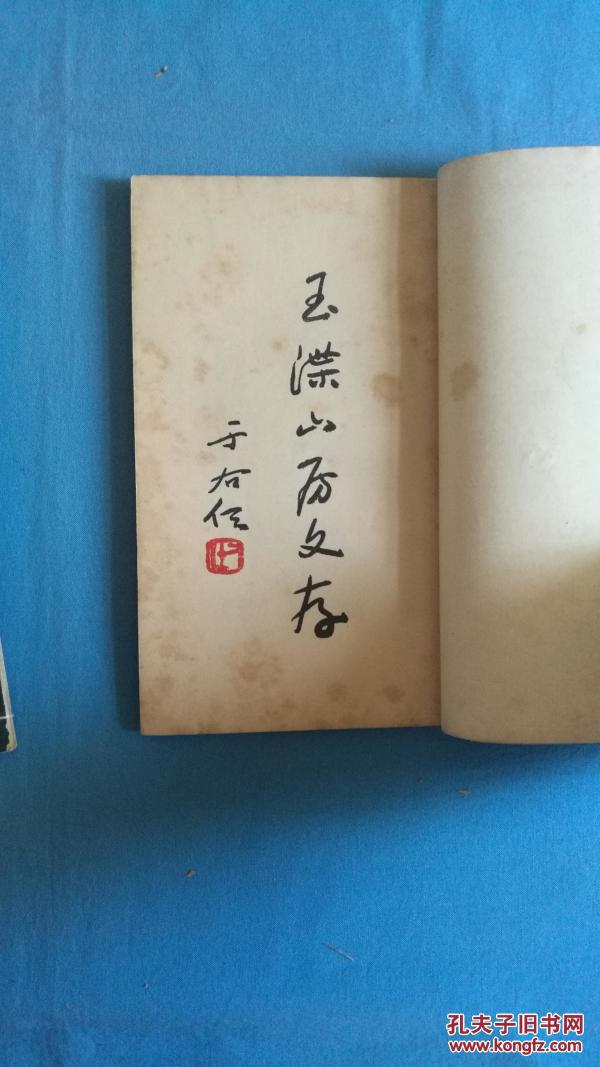 玉渫山房文存
于右任
孔夫子旧书网
www.kongfz.com